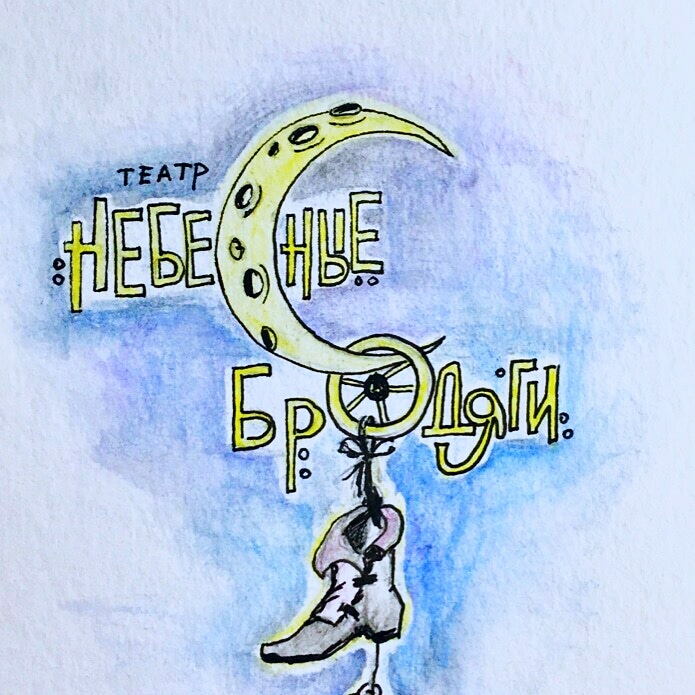 ТЕАТР
НЕБЕСНЫЕ
БРОДЯГИ